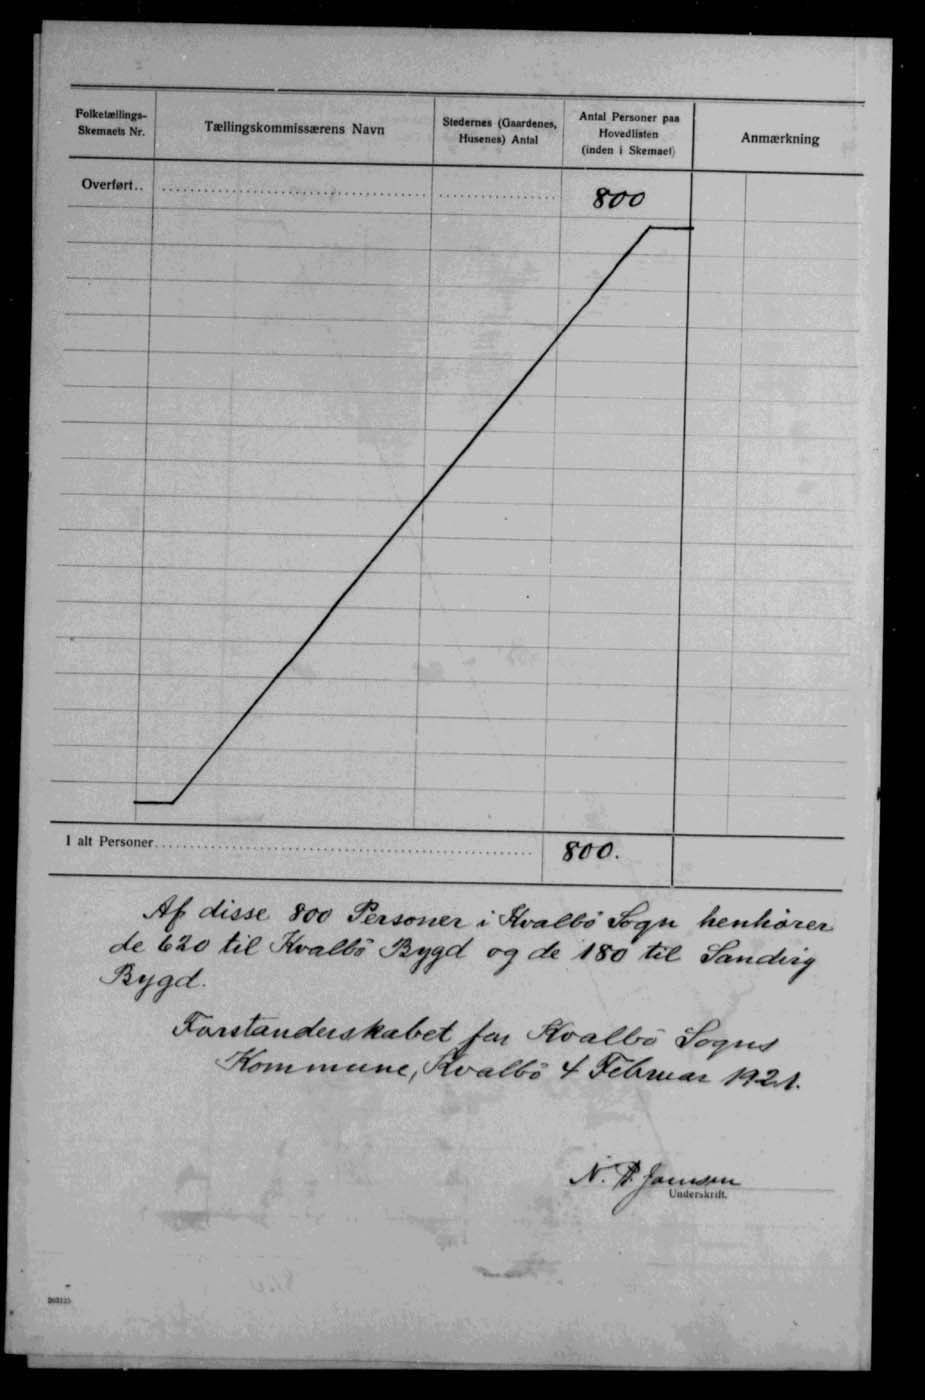 Folketællings- Skemaets Nr.
Tællingskommissærens Navn
Stedernes (Gaardenes, Husenes) Antal
Antal Personer paa Hovedlisten (inden i Skemaet)
Anmærkning
Overført.. 800
I alt Personer 800.
Af disse 800 Personer i Kvalbö Sogn henhörer
de 620 til Kvalbö Bygd og de 180 til Sandvig
Bygd.
Forstanderskabet for Kvalbö Sogns
Kommune, Kvalbö 4 Februar 1921.
N. P. Joensen
Underskrift.